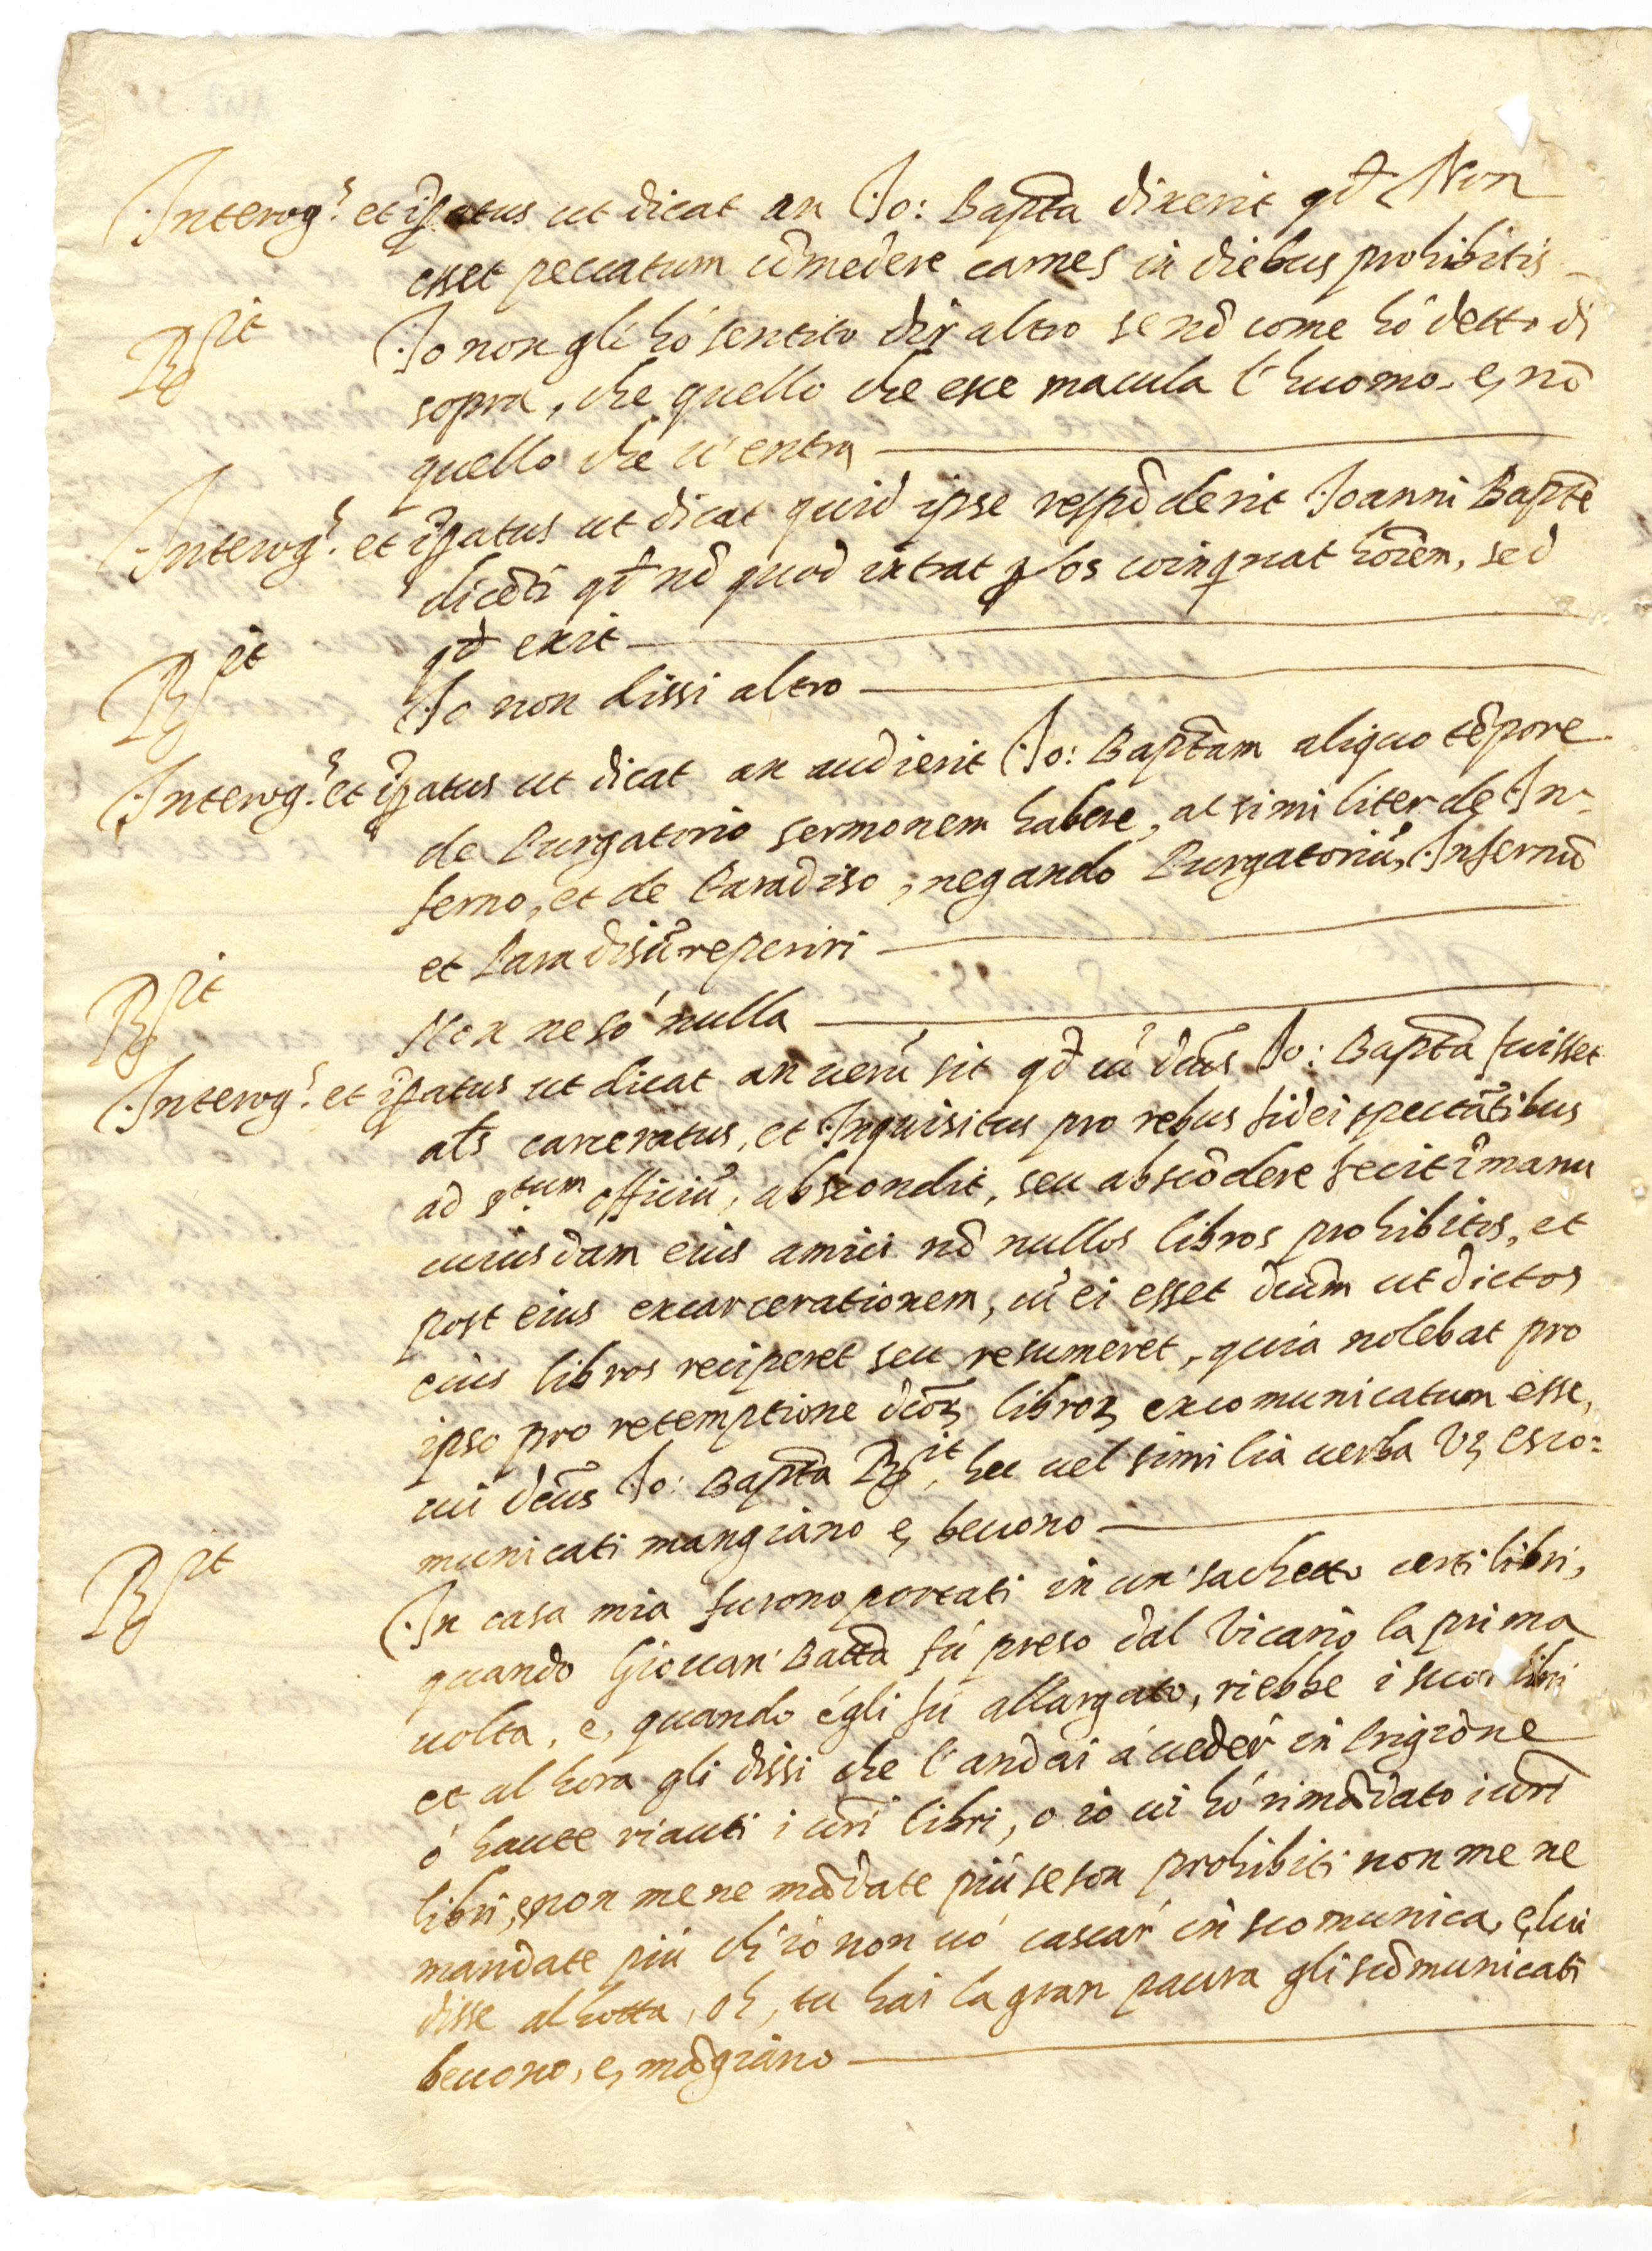 Interrog.s et ip̃atus ut dicat an Io: Bap̃ta dixerit qđ Non
esset peccatum cõmedere carnes in diebus prohibitis
R.it Io non gli hò sentito dir altro se nõ come hò detto di
sopra, che quello che esce macula l'huomo e, nõ
quello che u'entra
Interrog.s et ip̃atus ut dicat quid ipse respõderit Ioanni Bap̃te
dicẽti qđ nõ quod intrat p os coinqnat hoĩem, sed
qđ exit
R.it Io non dissi altro
Interrog.s et ip̃atus ut dicat an audierit Io: Bap̃tam aliquo tẽpore
de Purgatorio sermonem habere, ac similiter de In-
ferno, et de Paradiso, negando Purgatoriũ, Infernũ
et Paradisũ reperiri
R.it Non ne só nulla
Interrog.s et ip̃atus ut dicat an uerũ sit qđ cũ dc̃us Io: Bap̃ta fuisset
al̃s carceratus, et Inquisitus pro rebus fidei spectãtibus
ad s.tum officiũ, abscondit, seu abscõdere fecit ĩ manu
cuiusdam eius amici nõ nullos libros prohibitos, et
post eius excarcerationem, cũ ei esset dc̃um ut dictos
eius libros reciperet seu resumeret, quia nolebat pro
ipso pro retemptione dcõꝝ libroꝝ excomunicatum esse,
cui dc̃us Io: Bap̃ta R.it, hec uel similia uerba Vꝫ esco=
municati mangiano e, beuono
R.it In casa mia furono portati in un' sachetto certi libri,
quando Giouan' Bat̃ta fú preso dal Vicario la prima
uolta, e, quando égli fú allargato, riebbe i suoi libri
et al hora gli dissi che l'andai á ueder in Prigione
ó hauete riauti i ur̃i libri, o io ui hó rimãdato i ur̃i
libri, e, non me ne mãdate piú se son prohibiti non me ne
mandate piú ch'io non uó cascar in scomunica, e, lui
disse al hotta, oh, tu hai la gran paura gli scõmunicati
beuono, e, mãgiano